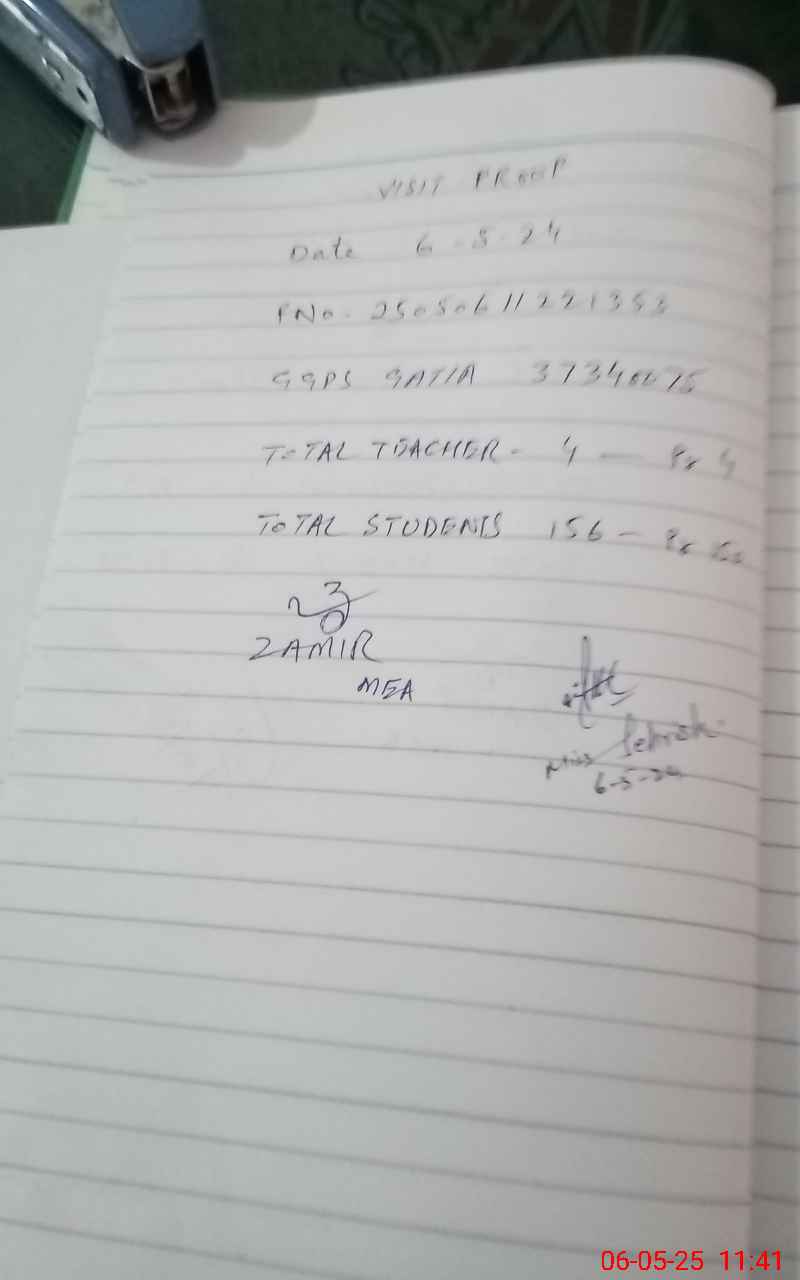 VISIT PROOF
Date 6-5-24
PNo. 25050611221353
GGPS GATIA 37340075
TOTAL TEACHER - 4 — Pr 4
TOTAL STUDENTS 156 — Pr
ZAMIR
MEA
Miss Sehrish
6-5-24
06-05-25 11:41